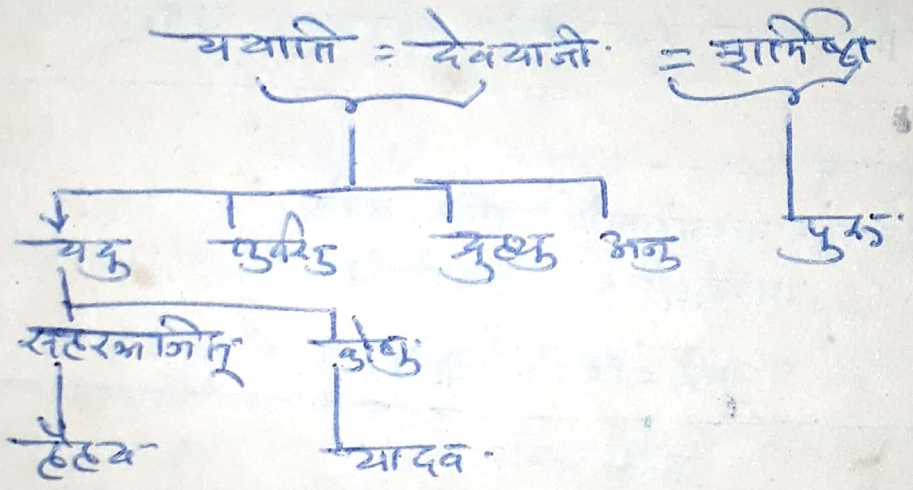 ययाति = देवयानी = शर्मिष्ठा
यदु तुर्वसु द्रुह्यु अनु पुरु
सहस्रजित् क्रोष्टु
हैहय यादव